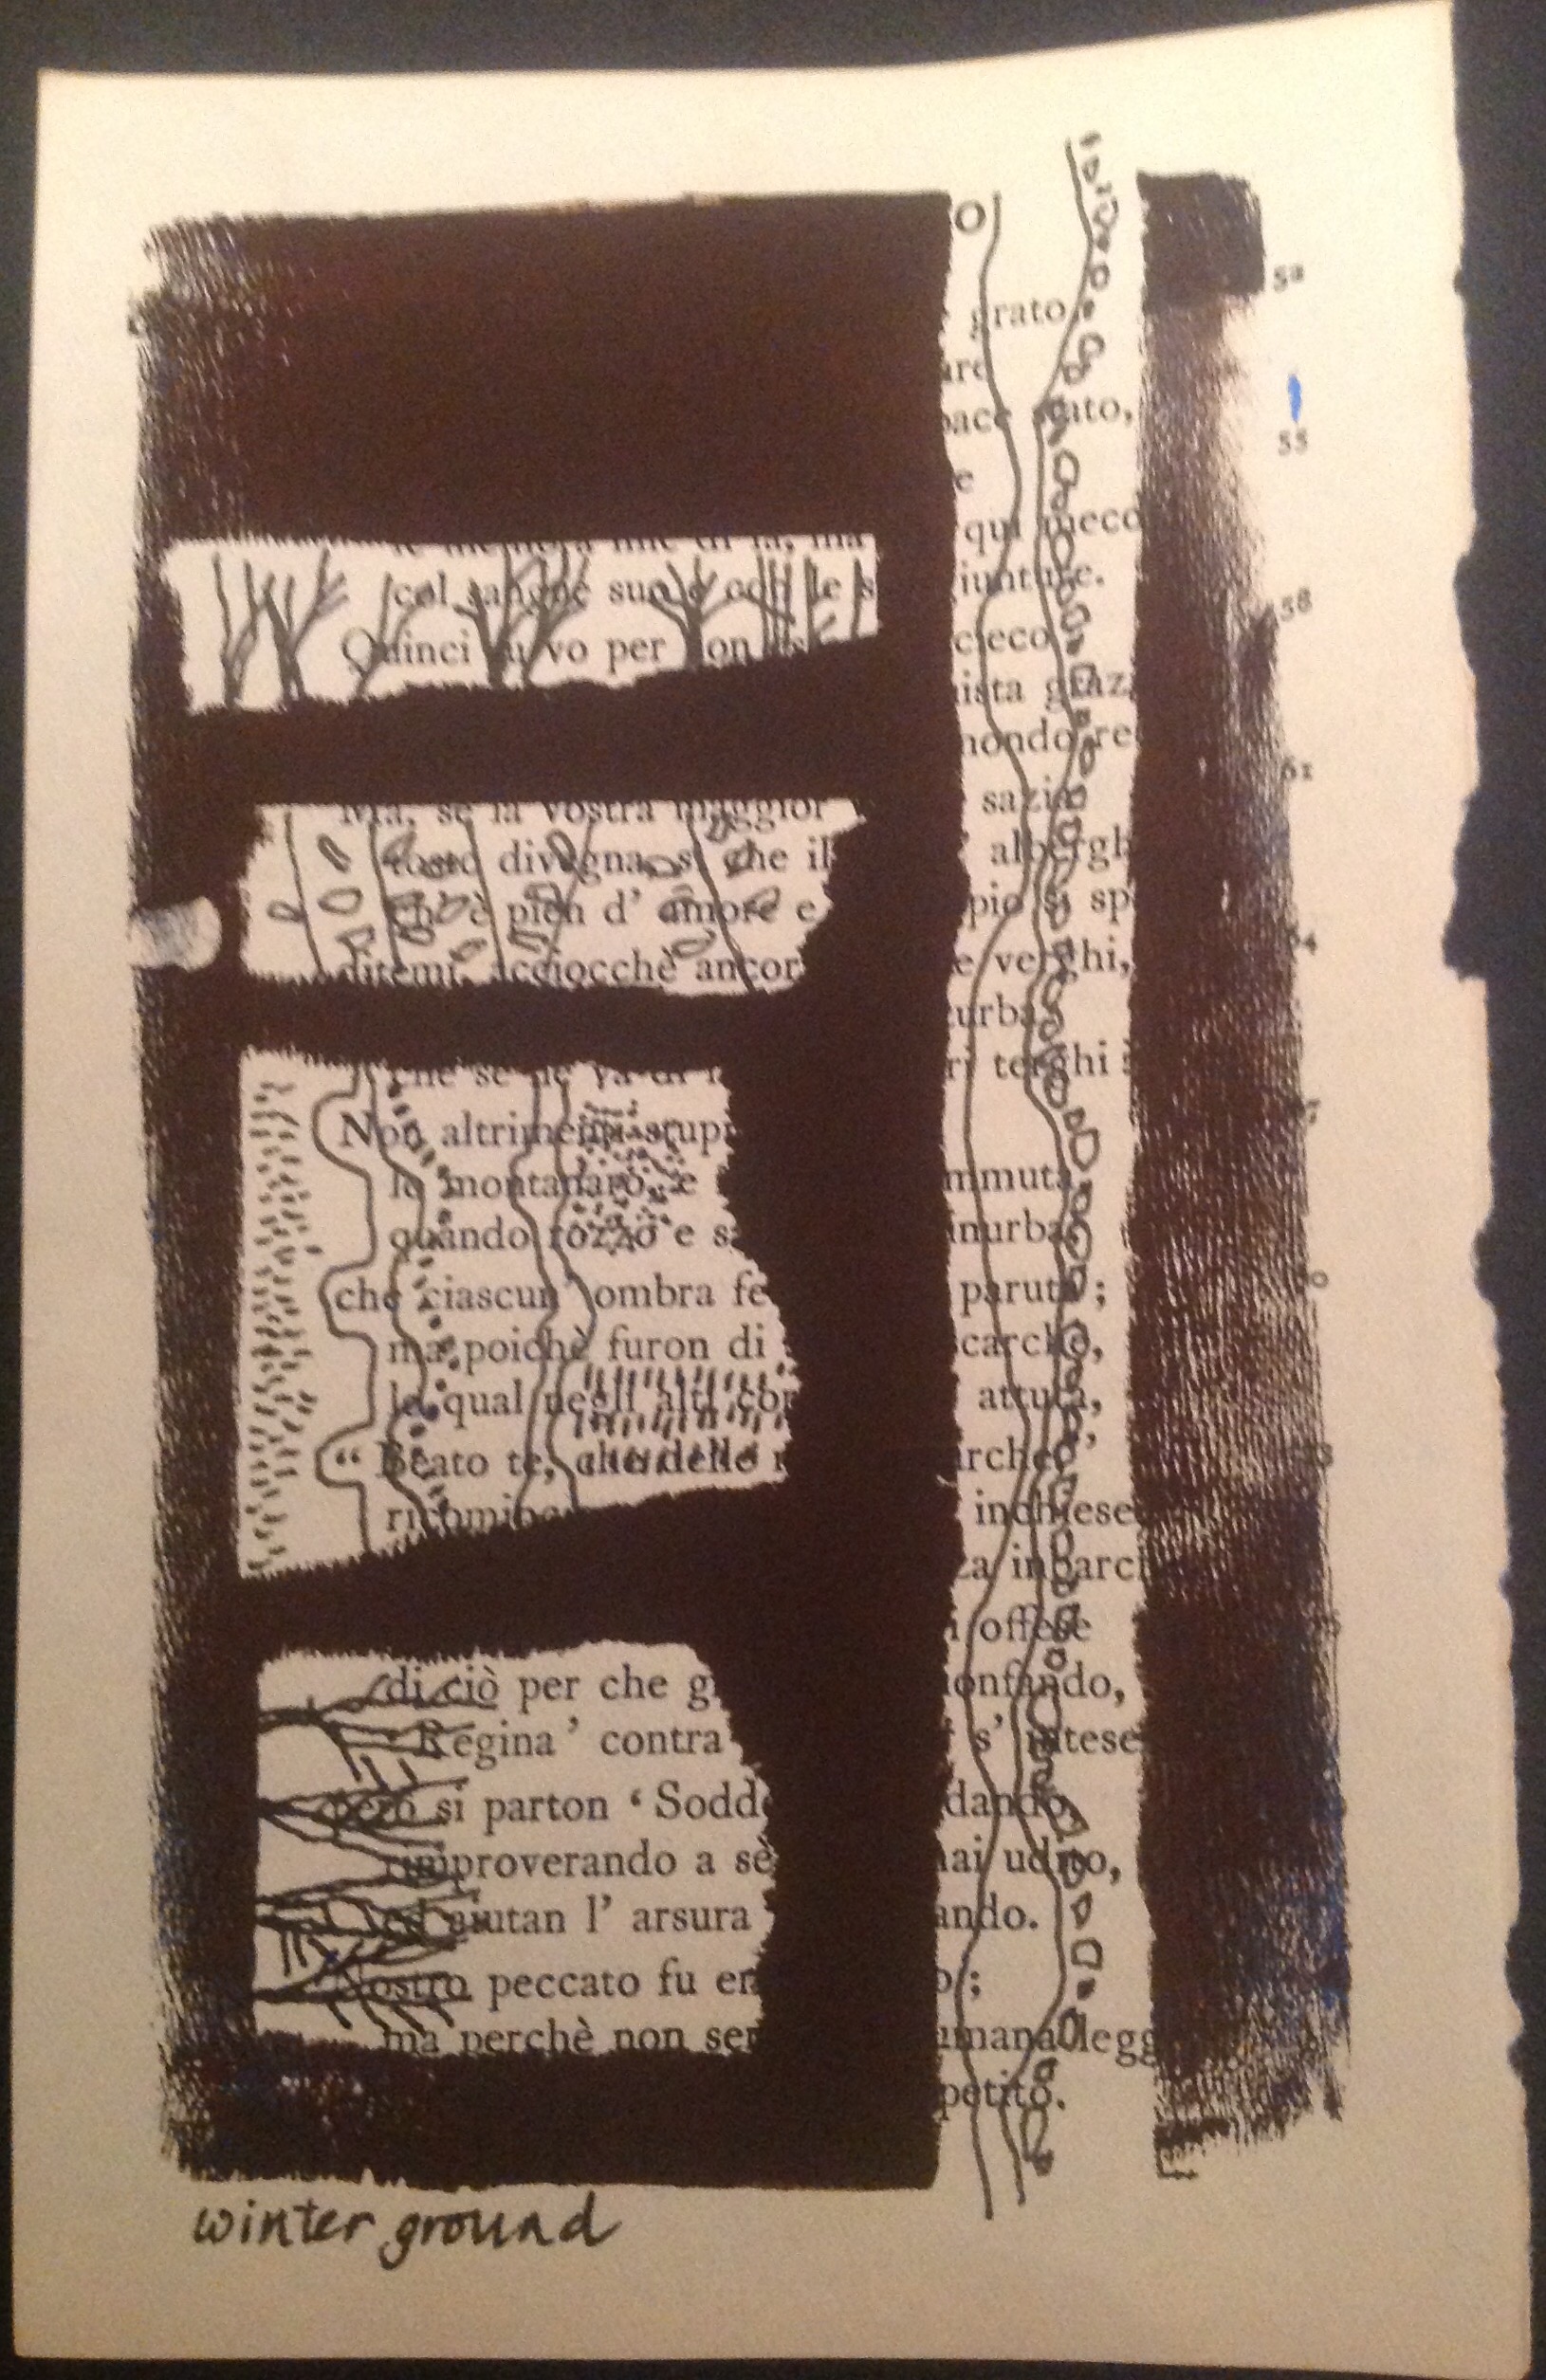 O
52
grato
pace stato,
55
e
ma qui meco
col sangue suo e con le s iunture.
58
Quinci su vo per non cieco
ista graz
mondo re
61
Ma, se la vostra maggior sazia
tosto divegna, sì che il albergh
ch' è pien d' amore e pio si sp
ditemi, acciocchè ancor e verghi,
turba
che se ne va di ri terghi
Non altrimenti stup
lo montanaro, e mmuta,
quando rozzo e s inurba,
che ciascun' ombra fe paruta ;
ma poichè furon di scarche,
lo qual negli alti cor attuta,
“ Beato te, che delle arche
inchiese
za imbarc
offese
di ciò per che g ionfando,
Regina ’ contra s’ intese
però si parton ‘ Sodd dando,
rimproverando a sè hai udito,
ed aiutan l’ arsura ando.
Nostro peccato fu er o ;
ma perchè non ser umana legg
petito.
winter ground